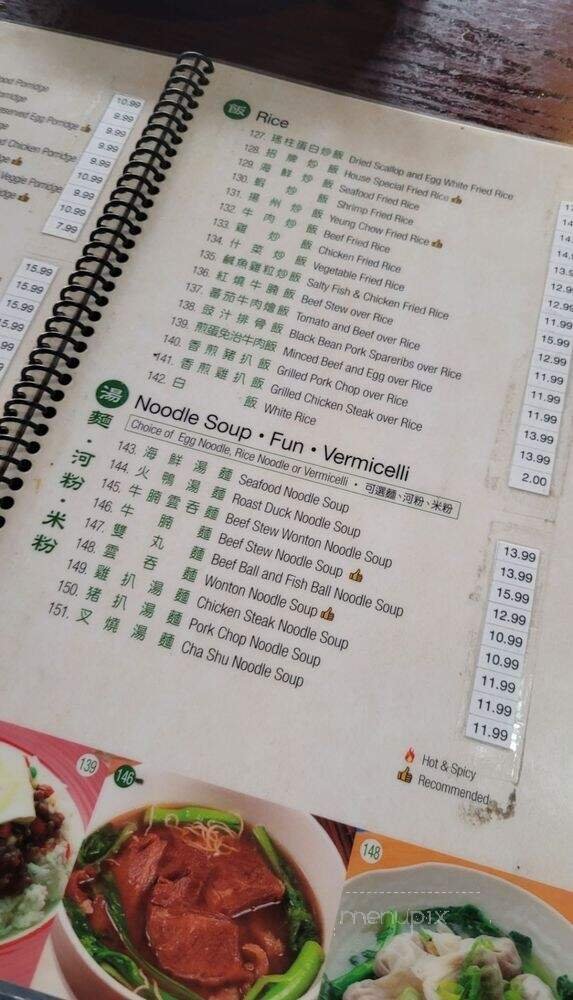 10.99
9.99
9.99
9.99
9.99
10.99
7.99
15.99
15.99
15.99
Porridge
Egg Porridge
Chicken Porridge
Veggie Porridge
Porridge
飯 Rice
127. 瑤柱蛋白炒飯 Dried Scallop and Egg White Fried Rice
128. 招牌炒飯 House Special Fried Rice
129. 海鮮炒飯 Seafood Fried Rice
130. 蝦炒飯 Shrimp Fried Rice
131. 揚州炒飯 Yeung Chow Fried Rice
132. 牛肉炒飯 Beef Fried Rice
133. 雞炒飯 Chicken Fried Rice
134. 什菜炒飯 Vegetable Fried Rice
135. 鹹魚雞粒炒飯 Salty Fish & Chicken Fried Rice
136. 紅燒牛腩飯 Beef Stew over Rice
137. 蕃茄牛肉燴飯 Tomato and Beef over Rice
138. 豉汁排骨飯 Black Bean Pork Spareribs over Rice
139. 煎蛋免治牛肉飯 Minced Beef and Egg over Rice
140. 香煎豬扒飯 Grilled Pork Chop over Rice
141. 香煎雞扒飯 Grilled Chicken Steak over Rice
142. 白飯 White Rice
11.99
15.99
12.99
11.99
11.99
11.99
13.99
13.99
2.00
湯麵·河粉·米粉
Noodle Soup • Fun • Vermicelli
Choice of Egg Noodle, Rice Noodle or Vermicelli • 可選麵、河粉、米粉
143. 海鮮湯麵 Seafood Noodle Soup 13.99
144. 火鴨湯麵 Roast Duck Noodle Soup 13.99
145. 牛腩雲吞麵 Beef Stew Wonton Noodle Soup 15.99
146. 牛腩麵 Beef Stew Noodle Soup 12.99
147. 雙丸麵 Beef Ball and Fish Ball Noodle Soup 10.99
148. 雲吞麵 Wonton Noodle Soup 10.99
149. 雞扒湯麵 Chicken Steak Noodle Soup 11.99
150. 豬扒湯麵 Pork Chop Noodle Soup 11.99
151. 叉燒湯麵 Cha Shu Noodle Soup 11.99
Hot & Spicy
Recommended
139
146
148
menupix